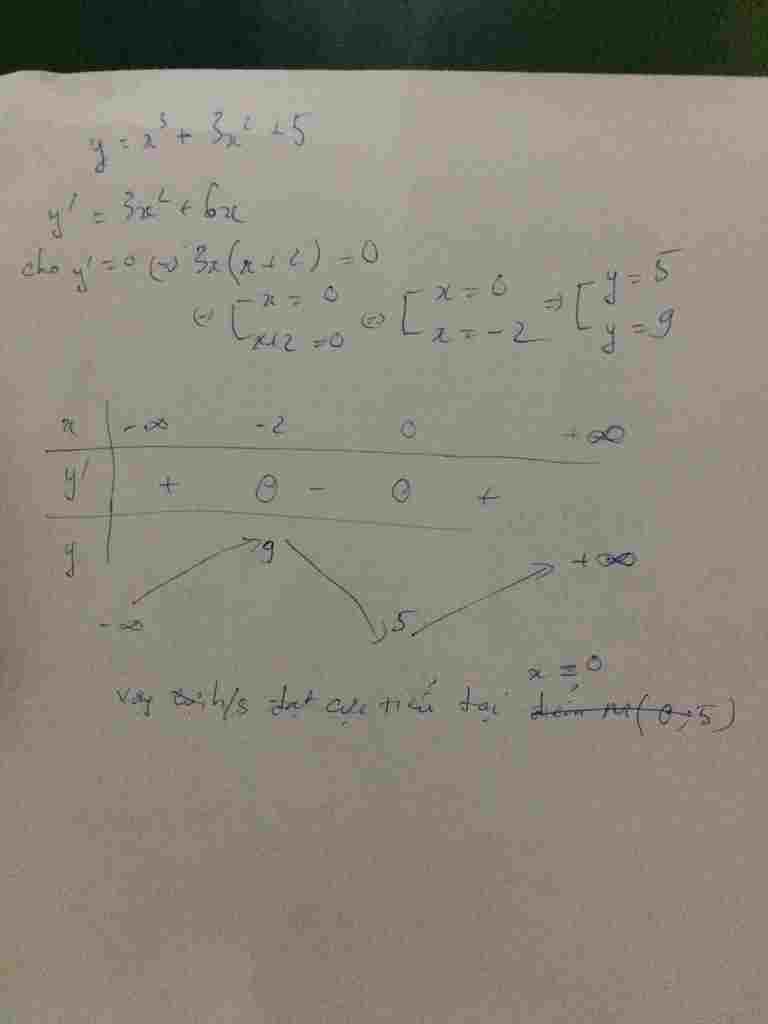 y = x³ + 3x² + 5
y' = 3x² + 6x
cho y' = 0 (=) 3x(x + 2) = 0
(=) [ x = 0 (=) [ x = 0 => [ y = 5
x+2 = 0 x = -2 y = 9
x -∞ -2 0 +∞
y' + 0 - 0 +
y 9 +∞
-∞ 5
x = 0
Vậy h/s đạt cực tiểu tại điểm M(0,5)